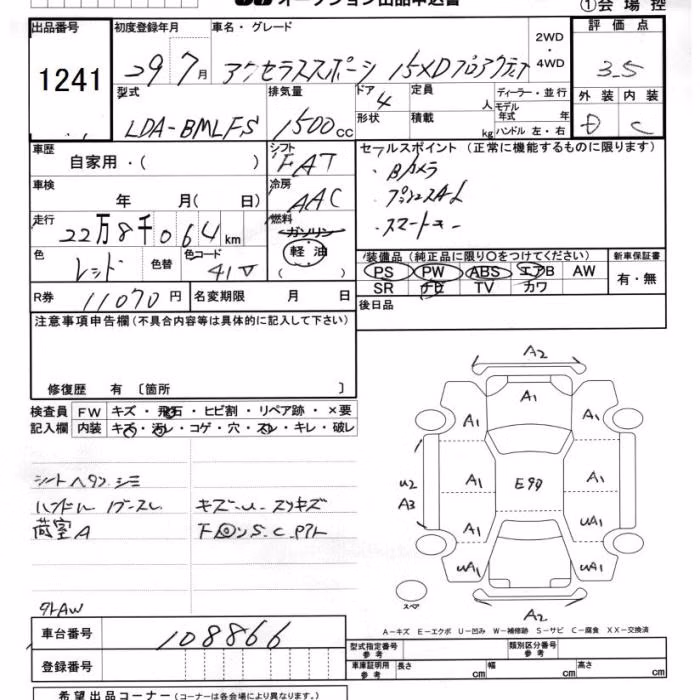 オークション出品申込書
①会場控
出品番号
1241
初度登録年月
29 7月
車名・グレード
アクセラスポーツ 15XDプロアクティブ
2WD
・
4WD
評価点
3.5
外装 内装
D C
型式
LDA-BMLFS
排気量
1500cc
ドア
4
形状
定員
人
積載
kg
ディーラー・並行
モデル年式 年
ハンドル 左・右
車歴
自家用・( )
シフト
FAT
車検
年 月( 日)
冷房
AAC
走行
22万8千064km
燃料
ガソリン
軽油
( )
色
レッド
色替
色コード
41V
R券
11070円
名変期限 月 日
セールスポイント (正常に機能するものに限ります)
・Bカメラ
・プッシュスタート
・スマートキー
装備品 (純正品に限り○をつけてください)
PS PW ABS エアB AW
SR ナビ TV カワ
新車保証書
有・無
後日品
注意事項申告欄 (不具合内容等は具体的に記入して下さい)
修復歴 有 〔箇所 〕
検査員
記入欄
FW キズ・飛石・ヒビ割・リペア跡・×要
内装 キズ・汚レ・コゲ・穴・スレ・キレ・破レ
シートヘタリ シミ
ハンドル
荷室A
キズ・U・スリキズ
S.C.
外AW
A2
A1
A1 A1
A1 E99 A1
U2
A3
A1 UA1
UA1 UA1
スペア
A2
A-キズ E-エクボ U-凹み W-補修跡 S-サビ C-腐食 XX-交換済
車台番号
108866
登録番号
型式指定番号
参考
類別区分番号
参考
車庫証明用
参考
長さ cm 幅 cm 高さ cm
希望出品コーナー (コーナーは各会場により異なります。)